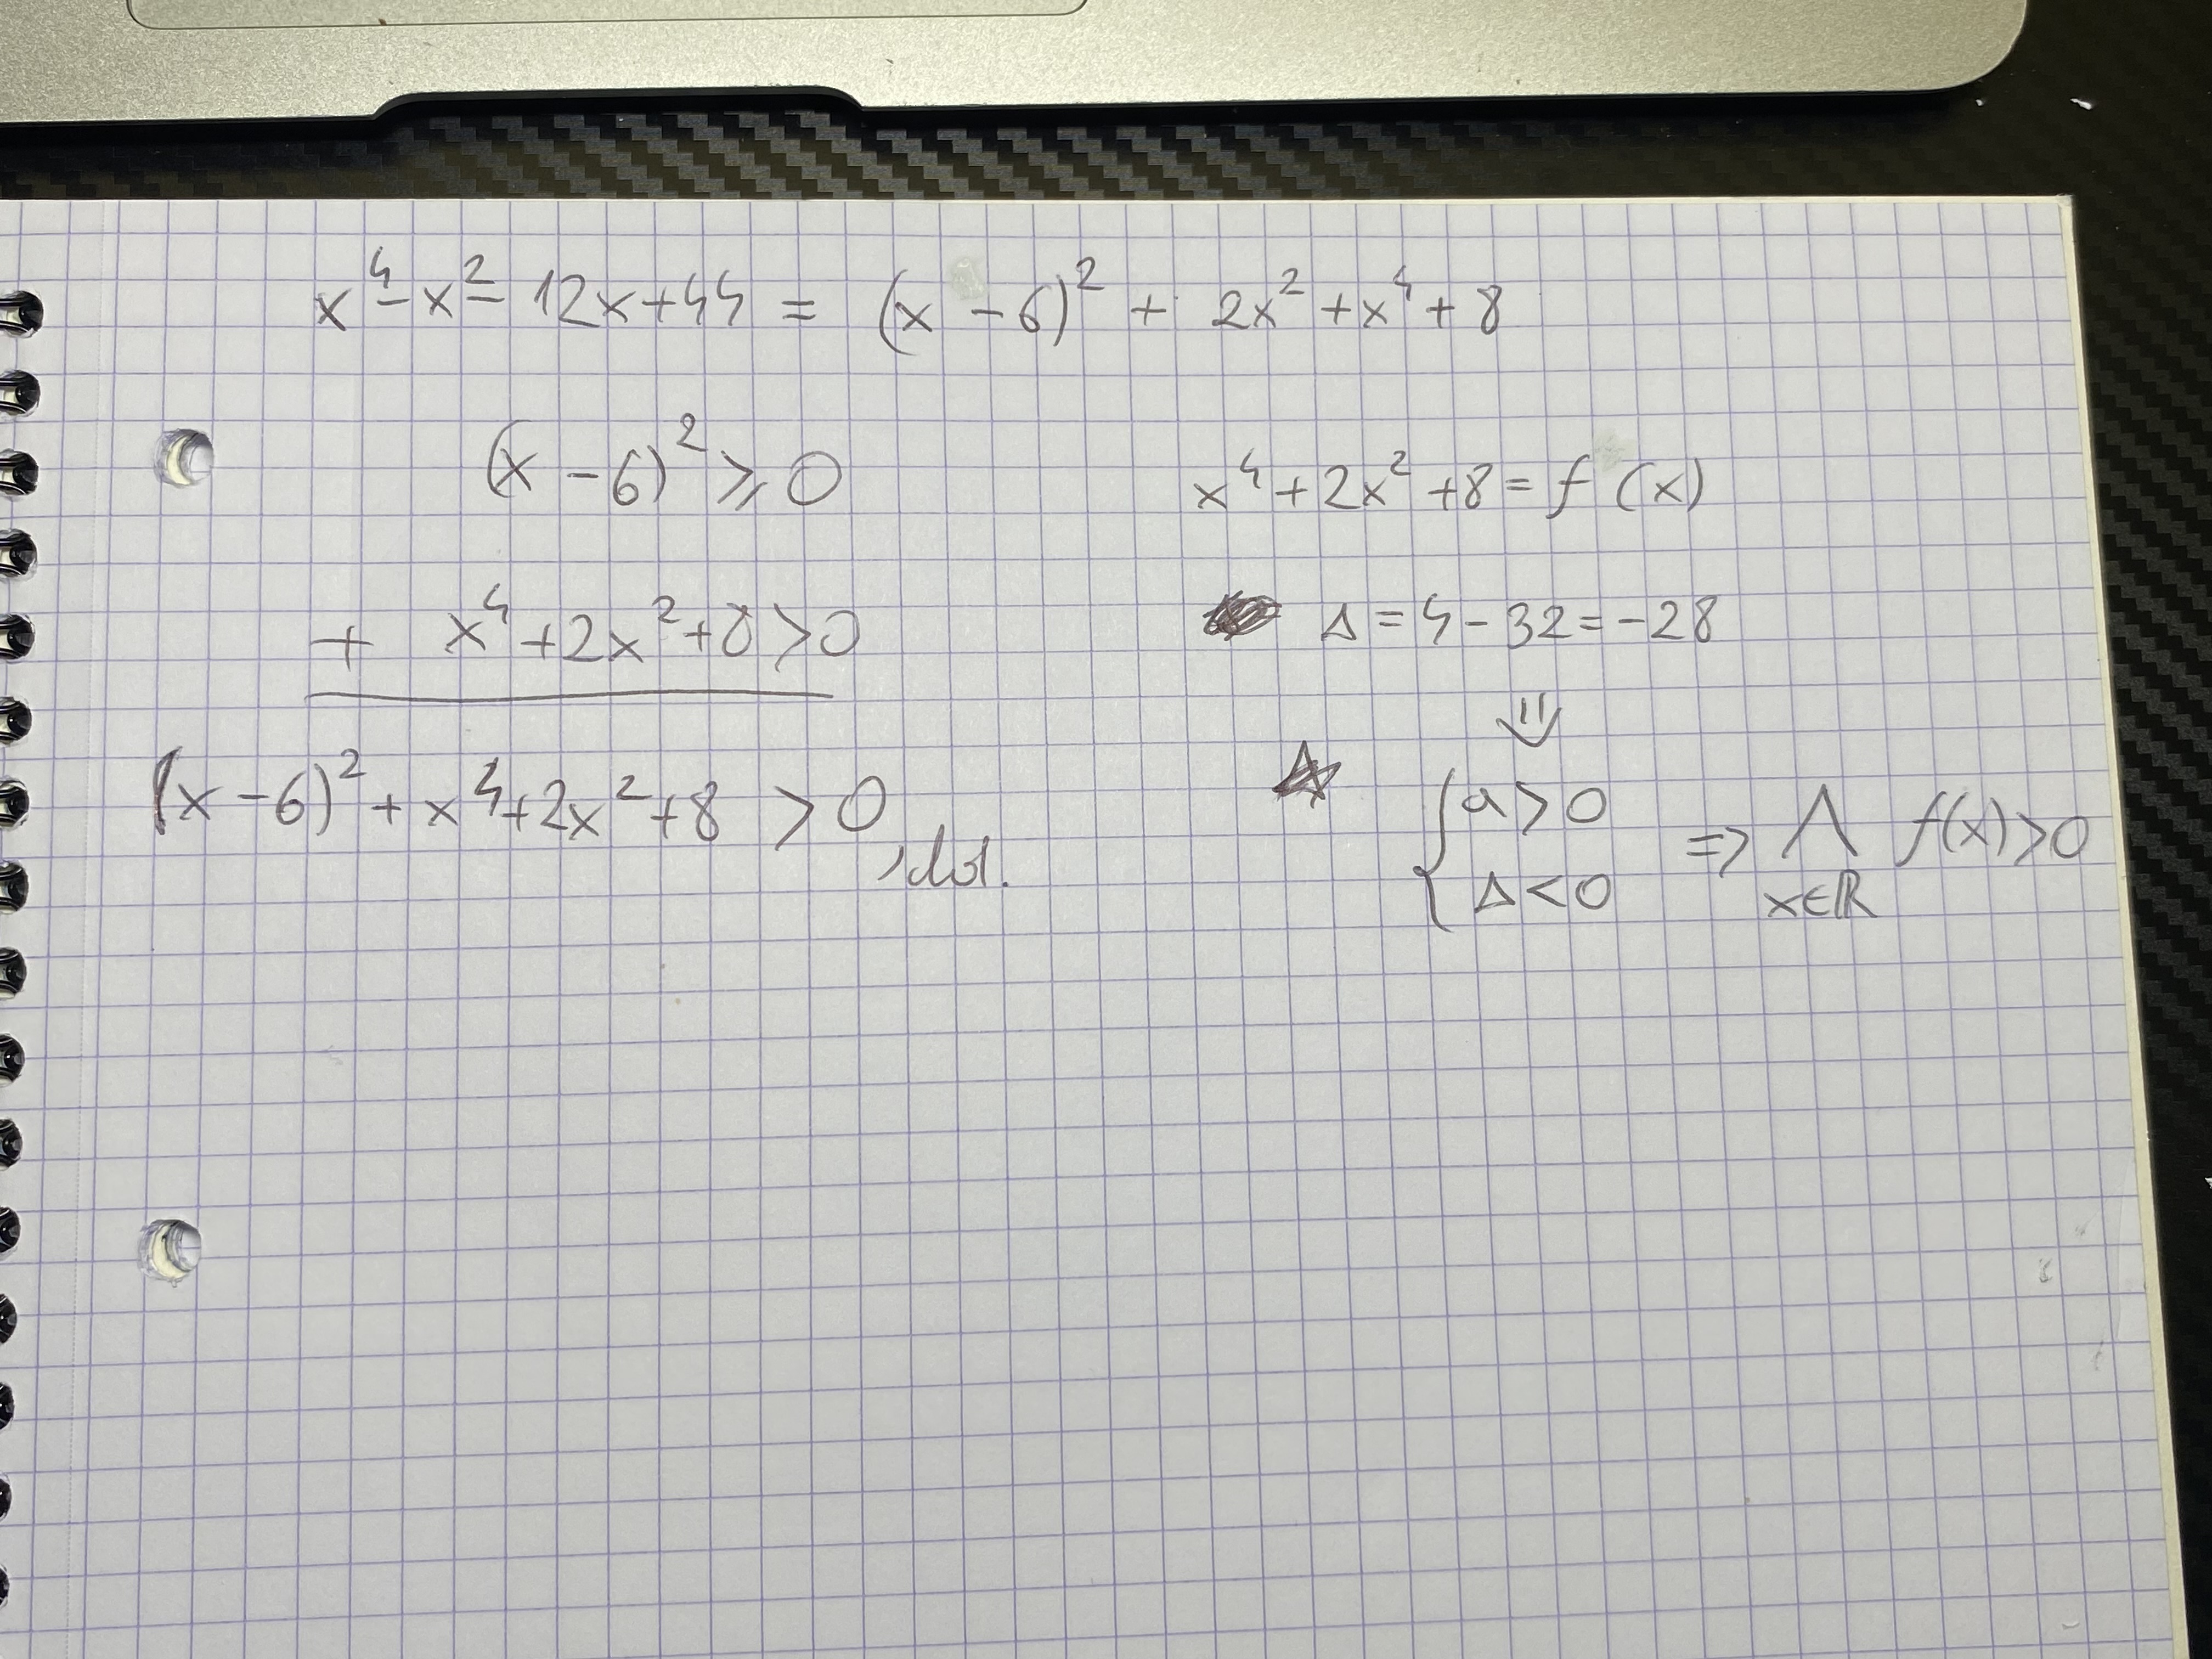 x⁴ - x² - 12x + 44 = (x - 6)² + 2x² + x⁴ + 8
(x - 6)² ⩾ 0
+ x⁴ + 2x² + 8 > 0
(x - 6)² + x⁴ + 2x² + 8 > 0
x⁴ + 2x² + 8 = f(x)
Δ = 4 - 32 = -28
⇓
{ a > 0
{ Δ < 0 => ⋀ x∈ℝ f(x) > 0